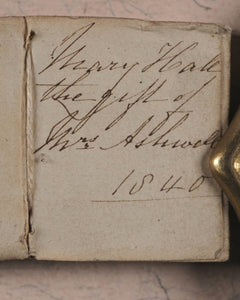 Mary Hall
the gift of
Mrs Ashwell
1840